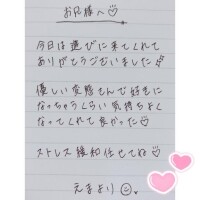 お兄様へ♡
今日は遊びに来てくれて
ありがとうございました
優しい変態さんで好きに
なっちゃうくらい気持ちよく
なってくれて良かった♡
ストレス緩和任せてね♡
えまより☺